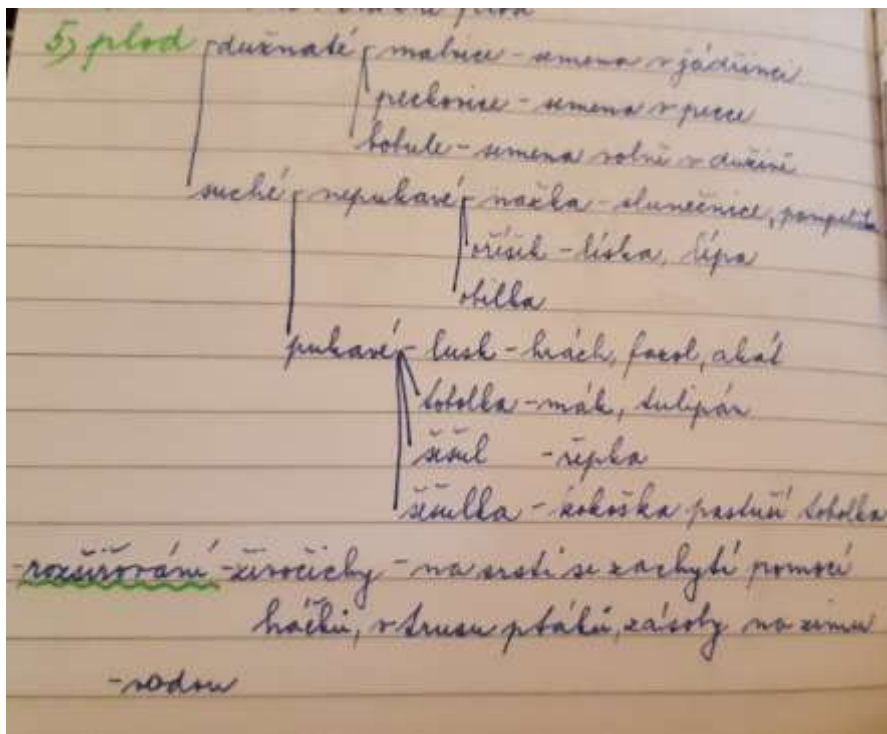 plod
5, plod dužnaté malvice - semena v jádřinci
peckovice - semena v pecce
bobule - semena volně v dužině
suché nepukavé nažka - slunečnice, pampeliška
oříšek - líska, lípa
obilka
pukavé - lusk - hrách, fazol, akát
tobolka - mák, tulipán
šešul - řepka
šešulka - kokoška pastuší tobolka
- rozšiřování - živočichy - na srsti se zachytí pomocí
háčků, v trusu ptáků, zásoby na zimu
- vodou